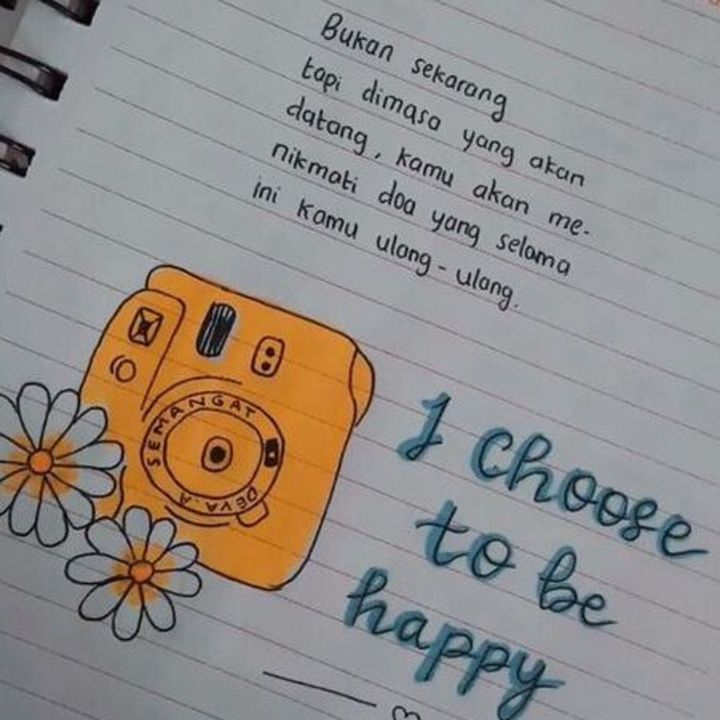 Bukan sekarang
tapi dimasa yang akan
datang, kamu akan me-
nikmati doa yang selama
ini kamu ulang-ulang.
SEMANGAT
DEVA.A
I choose
to be
happy